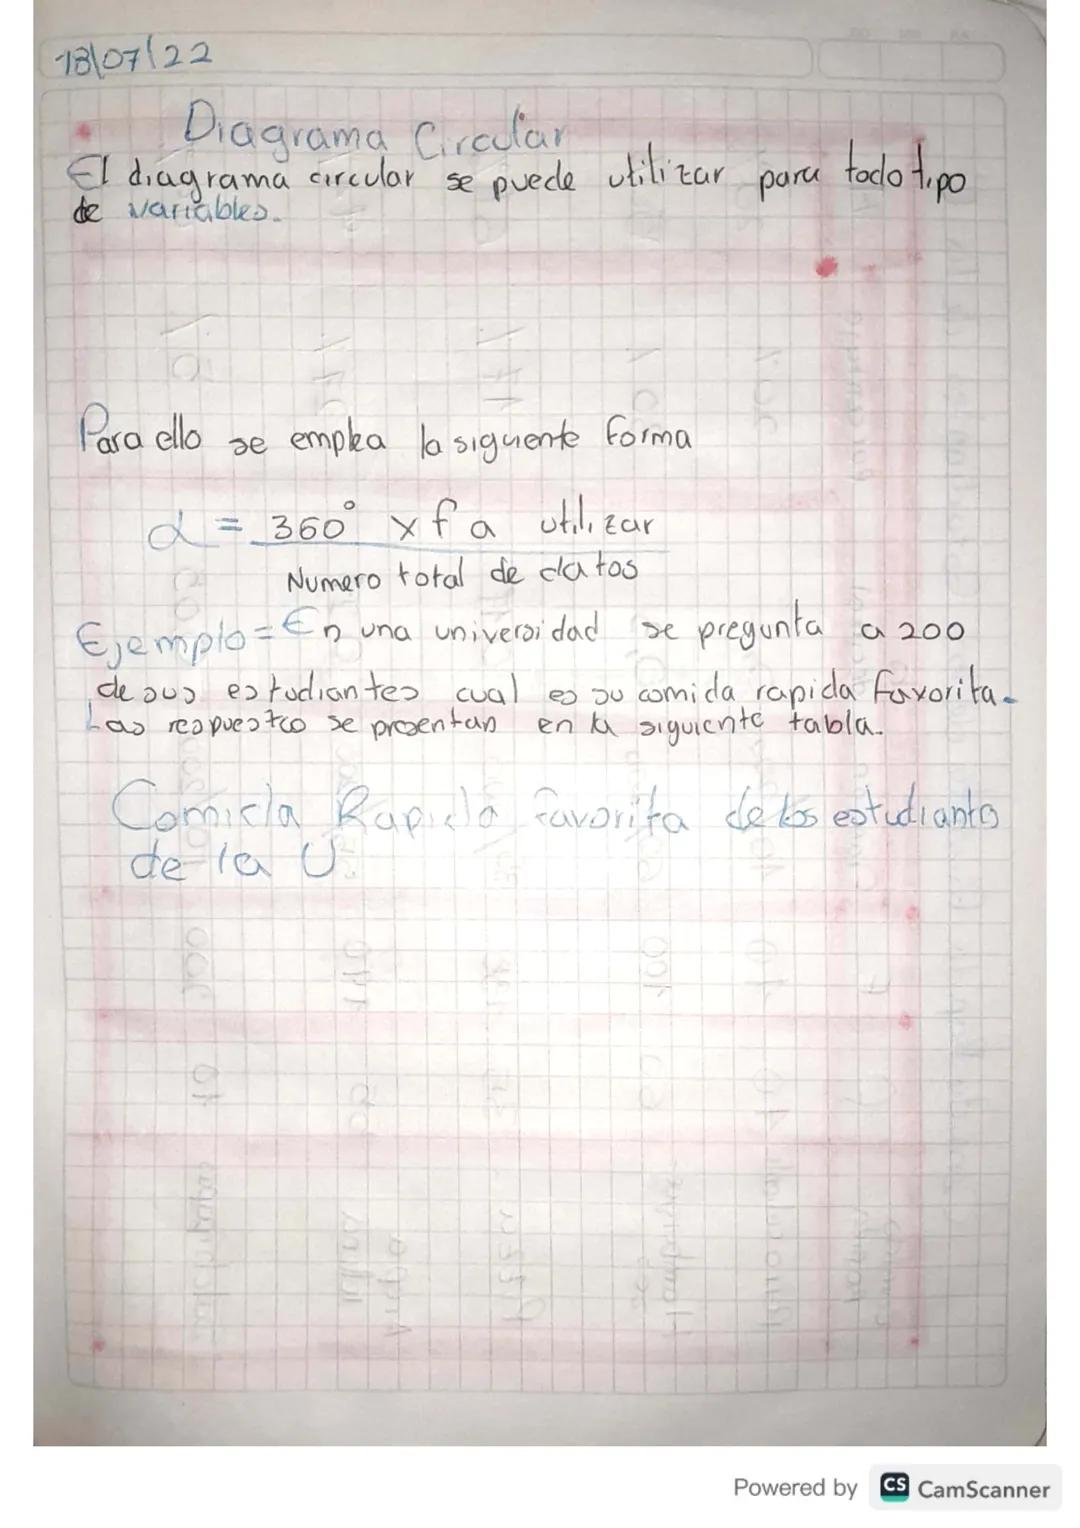 18\07\22
Diagrama Circular
El diagrama circular se puede utilizar para todo tipo
de variables.
Para ello se emplea la siguiente forma
α = 360° x f a utilizar
Numero total de datos
Ejemplo = En una universidad se pregunta a 200
de sus estudiantes cual es su comida rapida favorita.
Las respuestas se presentan en la siguiente tabla.
Comida Rapida favorita de los estudiantes
de la U
Powered by CS CamScanner